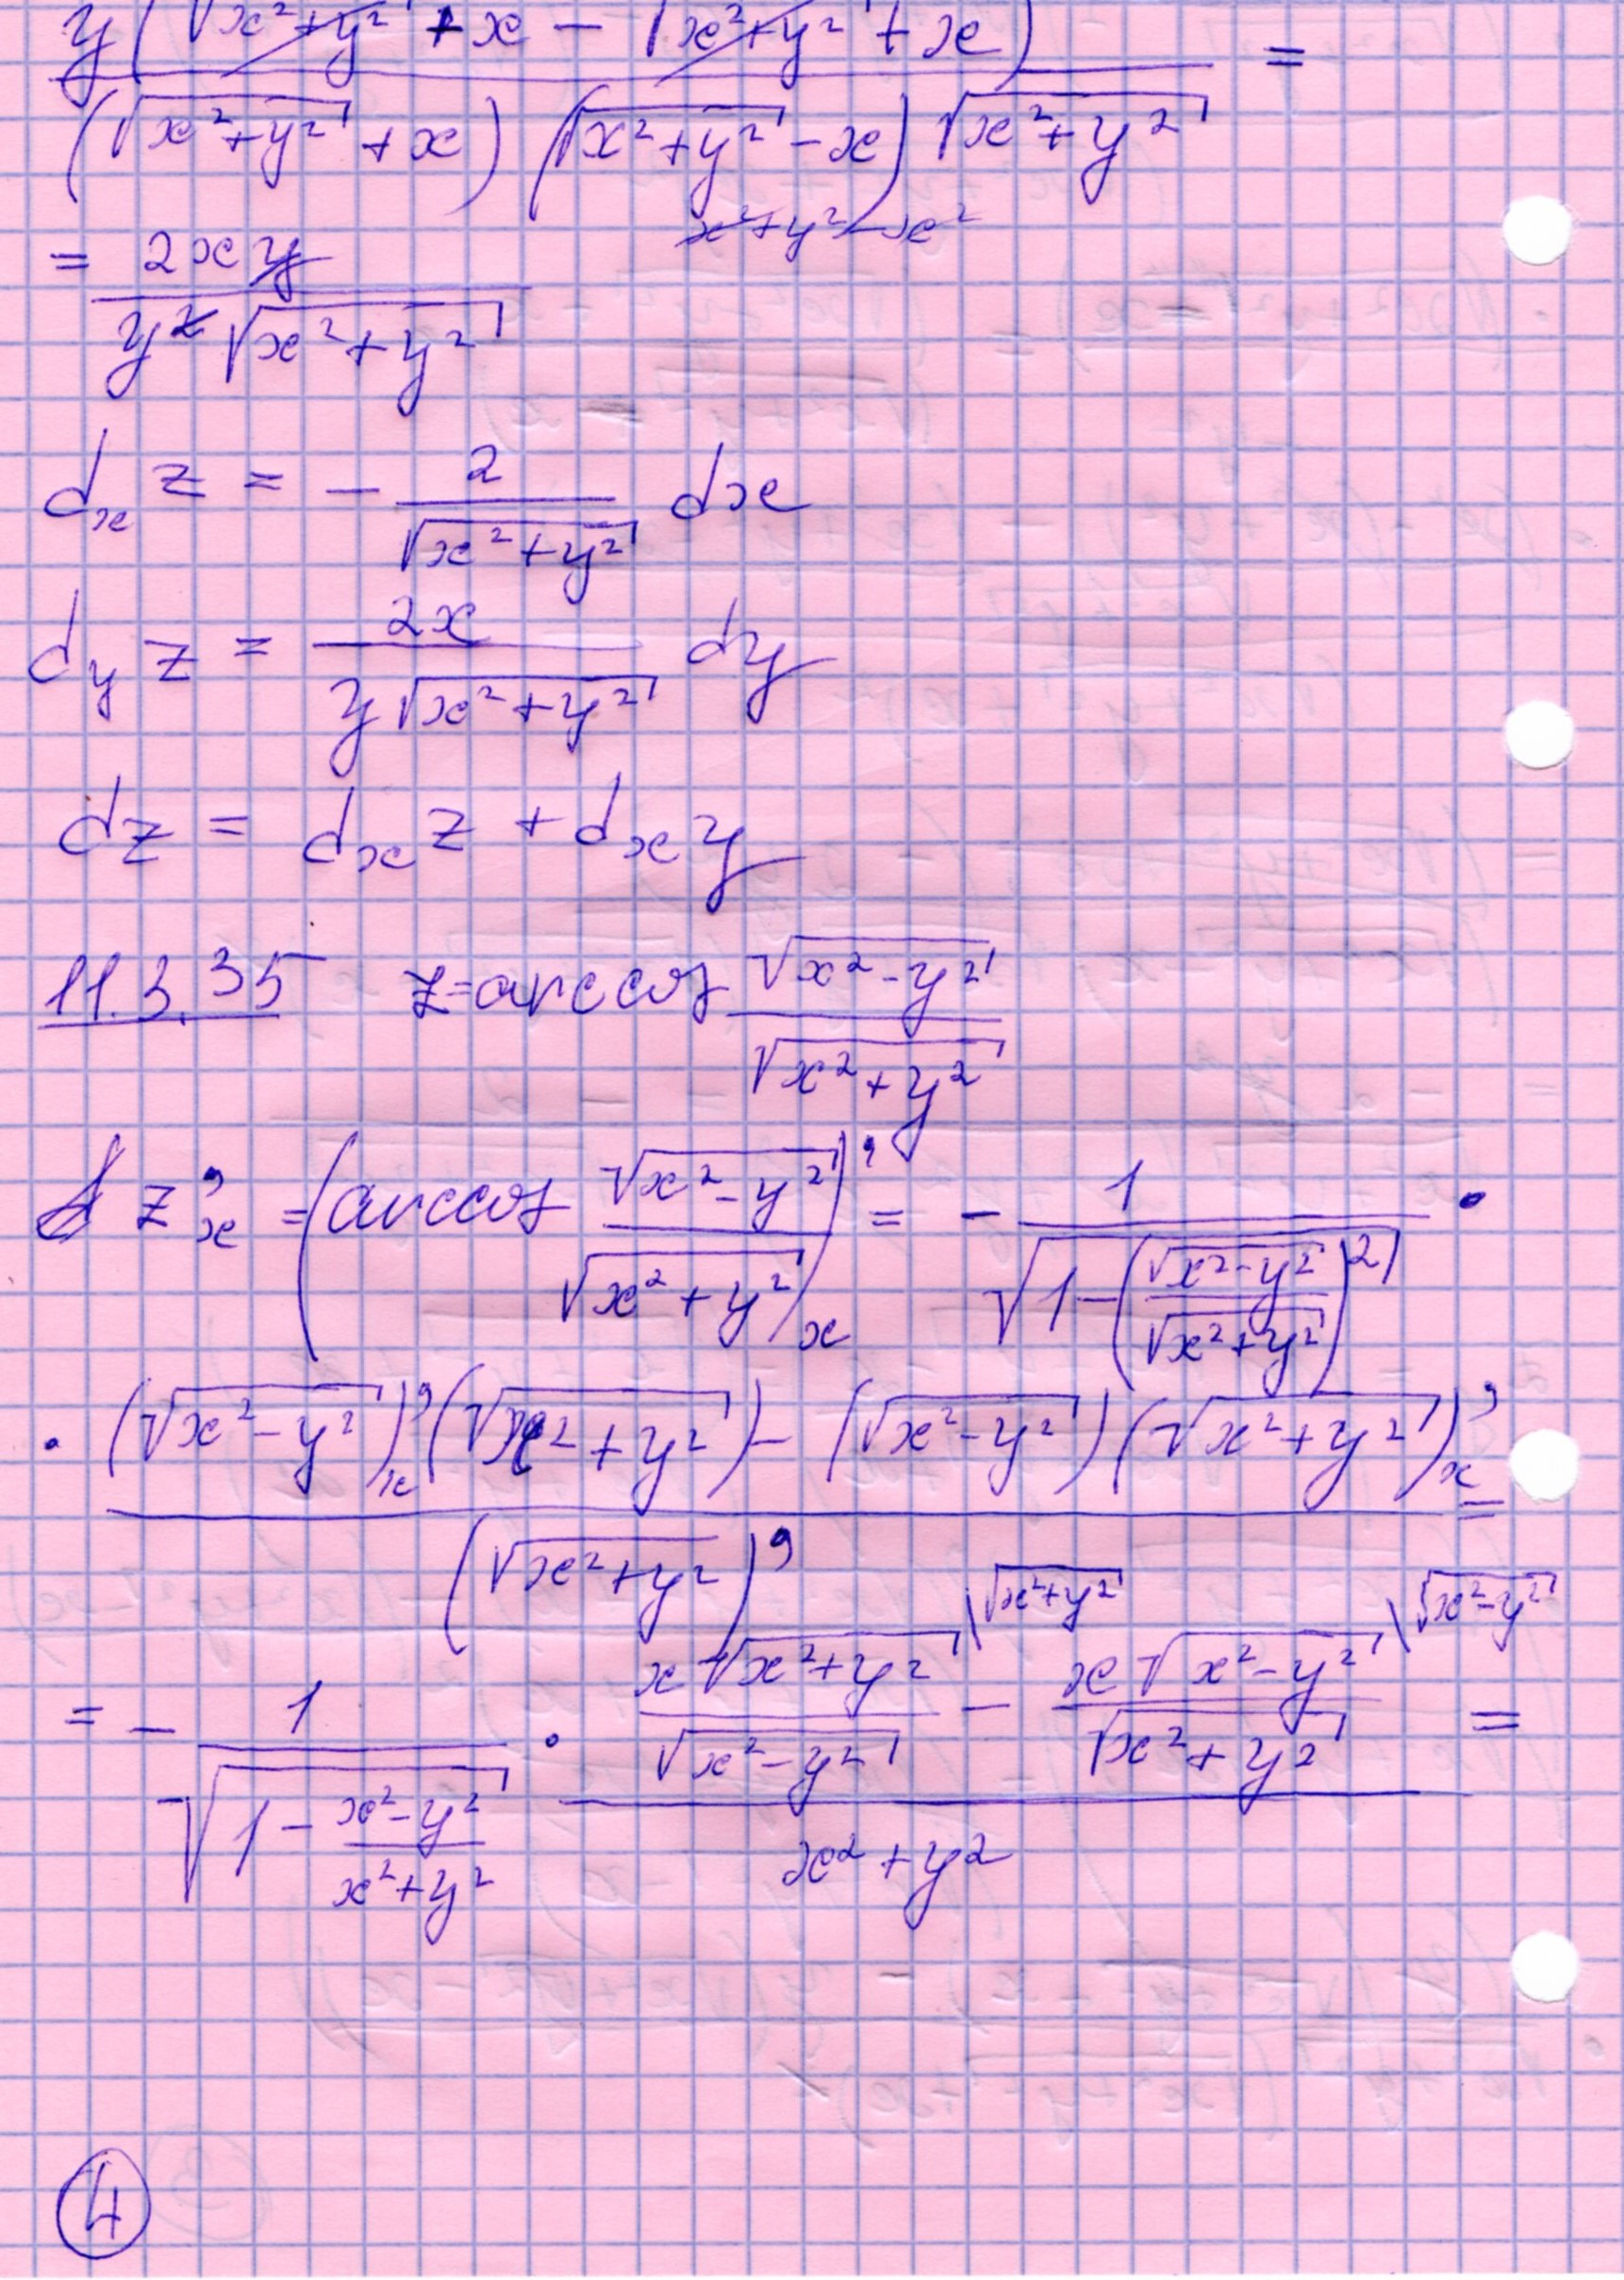 y(√(x²+y²) + x − √(x²+y²) + x) / ((√(x²+y²) + x)(√(x²+y²) − x)√(x²+y²)) =
x²+y²−x²
= 2xy / (y²√(x²+y²))
dₓ z = − 2/√(x²+y²) dx
d_y z = 2x/(y√(x²+y²)) dy
dz = dₓ z + dₓ y
11.3.35 z = arccos √(x²−y²)/√(x²+y²)
z'ₓ = (arccos √(x²−y²)/√(x²+y²))'ₓ = − 1/√(1−(√(x²−y²)/√(x²+y²))²) ·
· ((√(x²−y²))'ₓ(√(x²+y²)) − (√(x²−y²))(√(x²+y²))'ₓ) / (√(x²+y²))' =
= − 1/√(1 − (x²−y²)/(x²+y²)) · (x√(x²+y²)/√(x²−y²) \√(x²+y²) − x√(x²−y²)/√(x²+y²) \√(x²−y²)) / (x²+y²) =
4